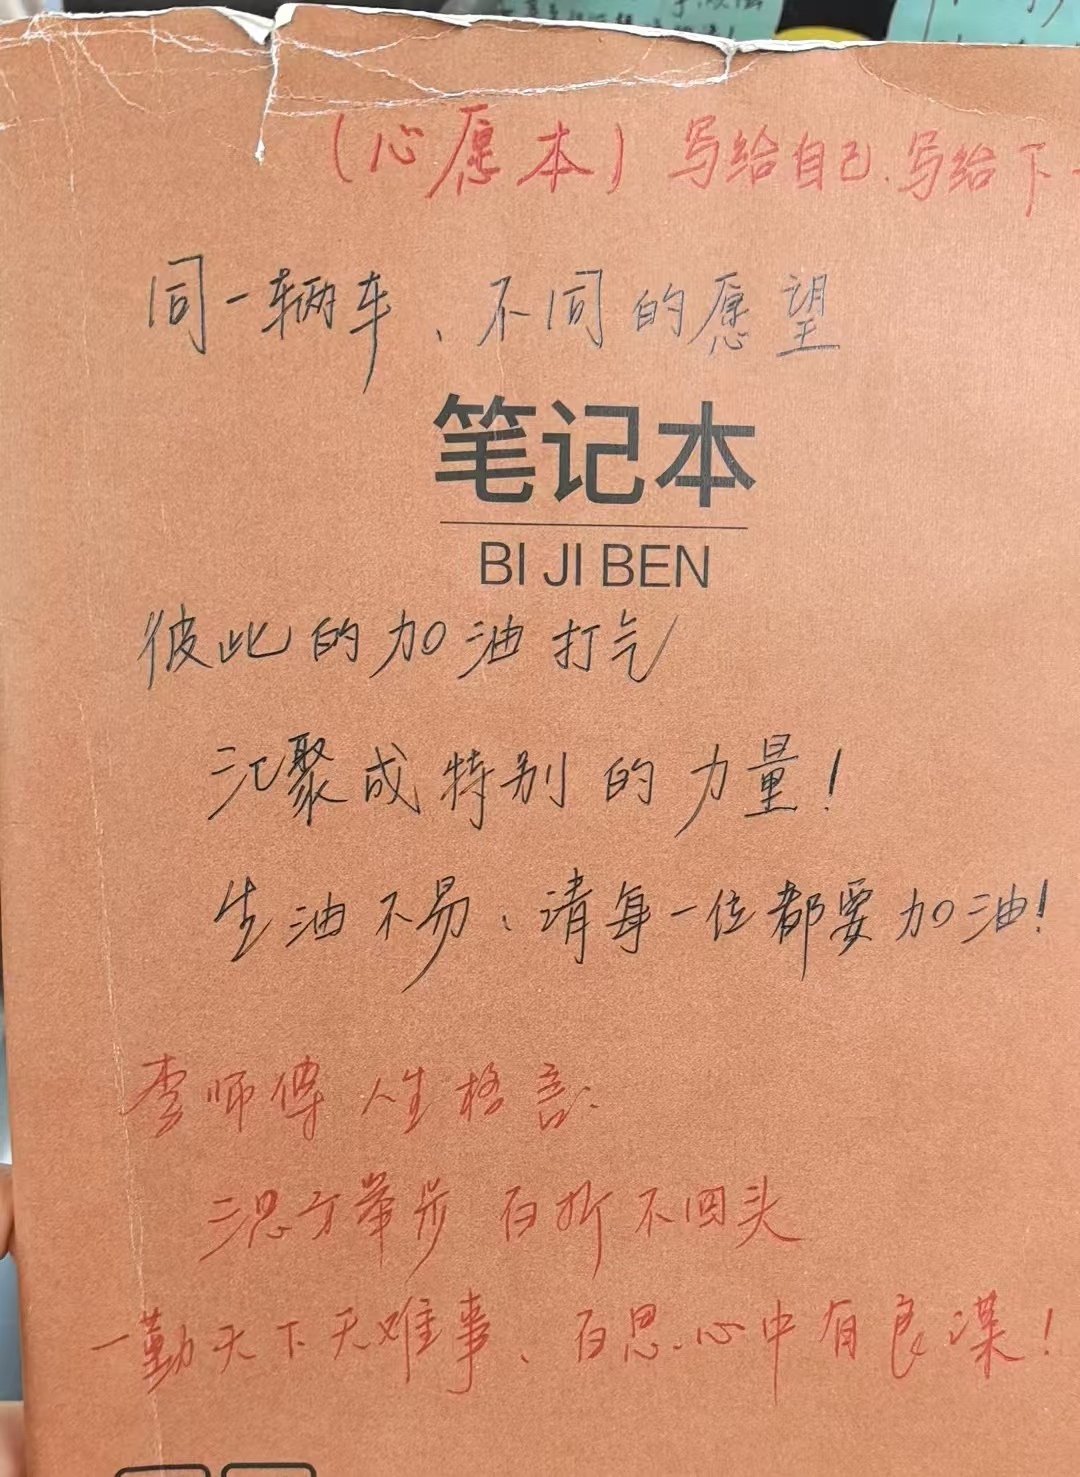 （心愿本）写给自己、写给下
同一辆车、不同的愿望
笔记本
BI JI BEN
彼此的加油打气
汇聚成特别的力量！
生油不易、请每一位都要加油！
李师傅人生格言：
三思方举步 百折不回头
一勤天下无难事、百思心中有良谋！